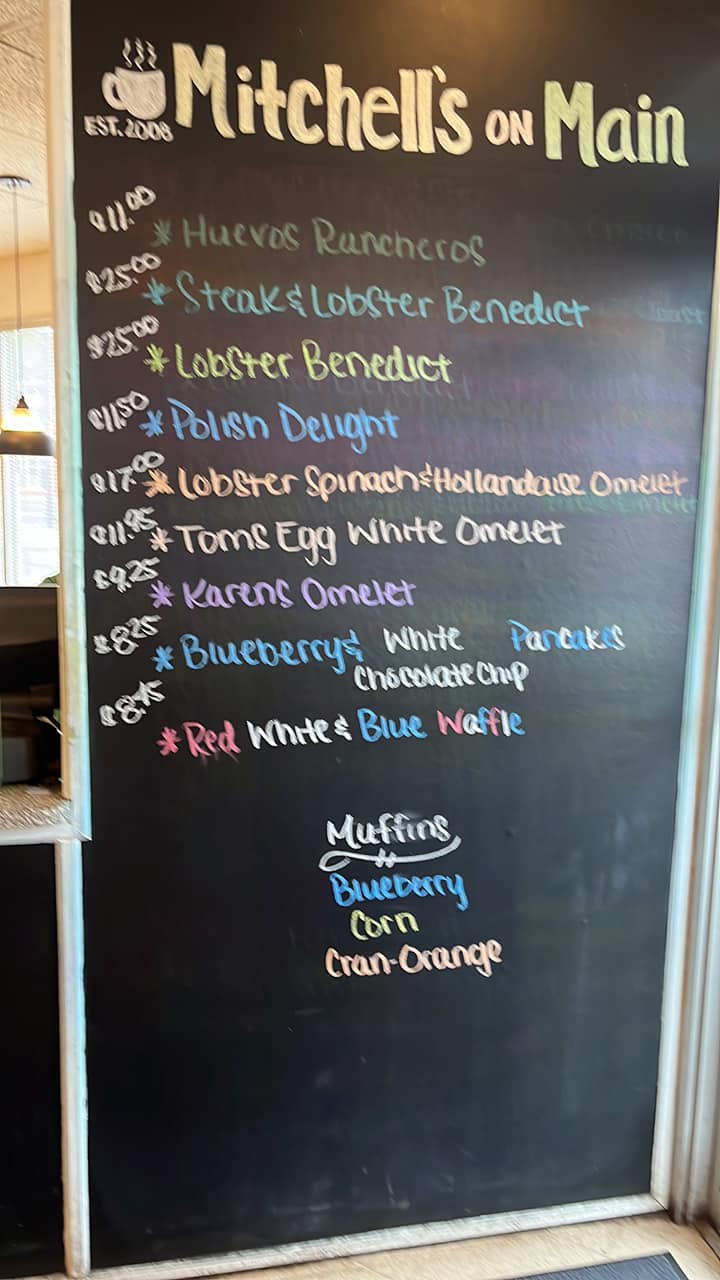 Mitchell's ON Main
EST. 2008
$11.00 * Huevos Rancheros
$25.00 * Steak & Lobster Benedict
$25.00 * Lobster Benedict
$11.50 * Polish Delight
$17.00 * Lobster Spinach & Hollandaise Omelet
$11.95 * Toms Egg White Omelet
$9.25 * Karens Omelet
$8.25 * Blueberry & White Pancakes
Chocolate Chip
* Red White & Blue Waffle
Muffins
Blueberry
Corn
Cran-Orange